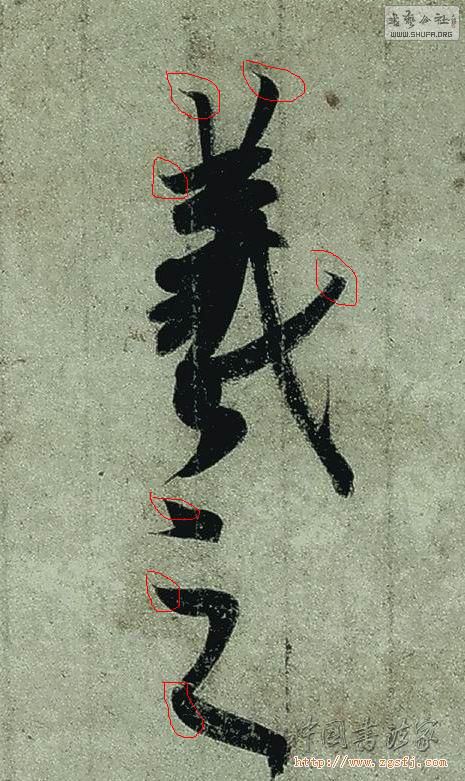 書藝公社
WWW.SHUFA.ORG
羲
之
中国书法家
http://www.zgsfj.com